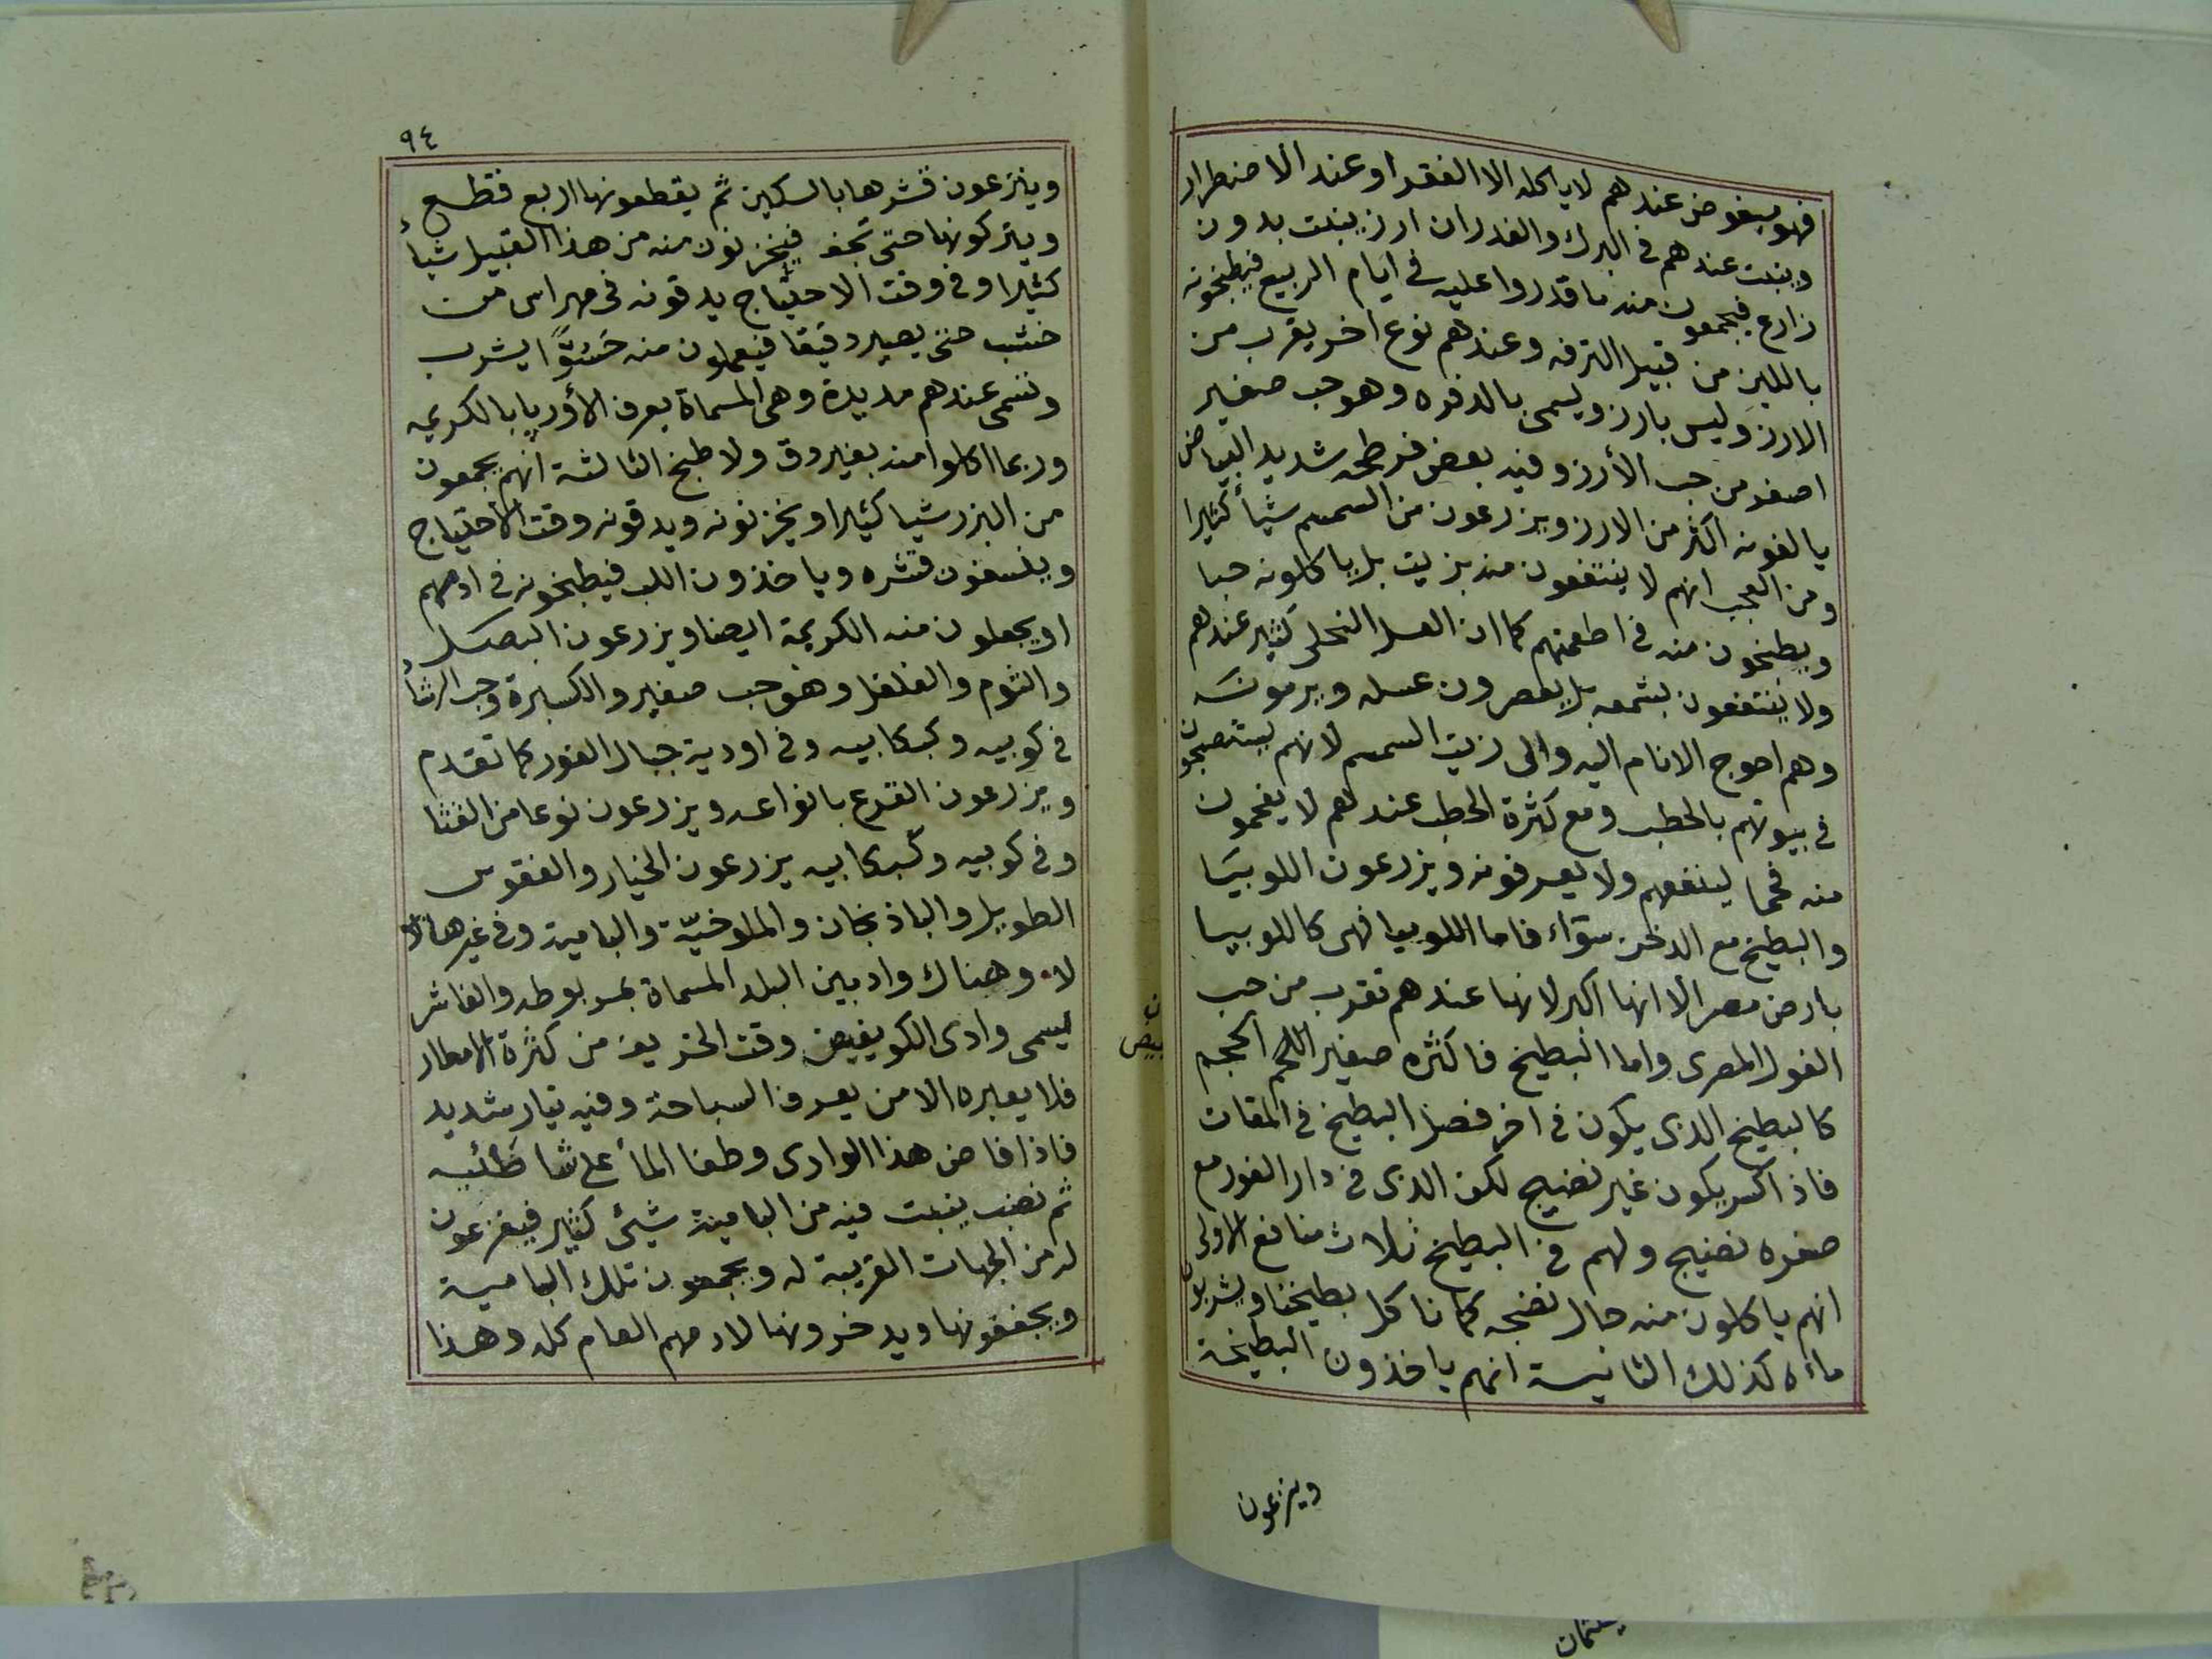 فهو مبغوض عندهم لا ياكله الا الفقرا وعند الاضطرار
وينبت عندهم فى البرك والغدران ارز ينبت بدون
زارع فيجمعون منه ما قدروا عليه فى ايام الربيع فيطبخونه
باللبن من قبيل الترفه وعندهم نوع اخر يقرب من
الارز وليس بارز ويسمى بالدفره وهو حب صغير
اصغر من حب الأرز وفيه بعض فرطحه شديد البياض
يالفونه اكثر من الارز ويزرعون من السمسم شيأ كثيرا
ومن العجب انهم لا ينتفعون منه بزيت بل ياكلونه حبا
ويطبخون منه فى اطعمتهم كما ان العسل النحل كثير عندهم
ولا ينتفعون بشمعه بل يعصرون عسله ويرمونه
وهم احوج الانام اليه والى زيت السمسم لانهم يستصبحون
فى بيوتهم بالحطب ومع كثرة الحطب عندهم لا يفحمون
منه فحما لينفعهم ولا يعرفونه ويزرعون اللوبيَا
والبطيخ مع الدخن سوَاء فاما اللوبيا فهى كاللوبيا
بارض مصر الا انها اكبر لانها عندهم تقرب من حب
الفول المصرى واما البطيخ فاكثره صغير اللحم الحجم
كالبطيخ الذى يكون فى اخر فصل البطيخ فى المقات
فاذا كسر يكون غير نضيج لكن الذى فى دار الفور مع
صغره نضيج ولهم فى البطيخ ثلاث منافع الاولى
انهم ياكلون منه حال نضجه كما ناكل بطيخنا ويشربون
ماءه كذلك الثانية انهم ياخذون البطيخة
وينزعون
٩٤
وينزعون قشرها بالسكين ثم يقطعونها اربع قطع
ويتركونها حتى تجف فيخزنون منه من هذا القبيل شيأ
كثيرا وفى وقت الاحتياج يدقونه فى مهراس من
خشب حتى يصير دقيقا فيعملون منه حَسْوًّا يشرب
وتسمى عندهم مديدة وهى المسماة بعرف الأوربا بالكريم
وربما اكلوا منه بغير دق ولا طبخ الثالثة انهم يجمعون
من البزر شيا كثيرا ويخزنونه ويدقونه وقت الاحتياج
وينسفون قشره وياخذون اللب فيطبخونه فى ادمهم
او يجعلون منه الكريمة ايضا ويزرعون البصل
والثوم والفلفل وهو حب صغير والكسبرة وحب الرشأ
فى كوبيه وكبكابيه وفى اودية جبال الفور كما تقدم
ويزرعون القرع بانواعه ويزرعون نوعا من القثا
وفى كوبيه وكبكابيه يزرعون الخيار والفقوس
الطويل والباذنجان والملوخيّة والبامية وفى غيرها
لا. وهناك واد بين البلد المسماة بمربوطه والفاشر
يسمى وادى الكو يفيض وقت الخريف من كثرة الامطار
فلا يعبره الا من يعرف السباحة وفيه تيار شديد
فاذا فاض هذا الوادى وطفا المأ على شاطئيه
ثم نضب ينبت فيه من البامية شيئ كثير فيفزعون
له من الجهات القريبة له ويجمعون تلك البامية
ويجففونها ويدخرونها لادمهم العام كله وهذا